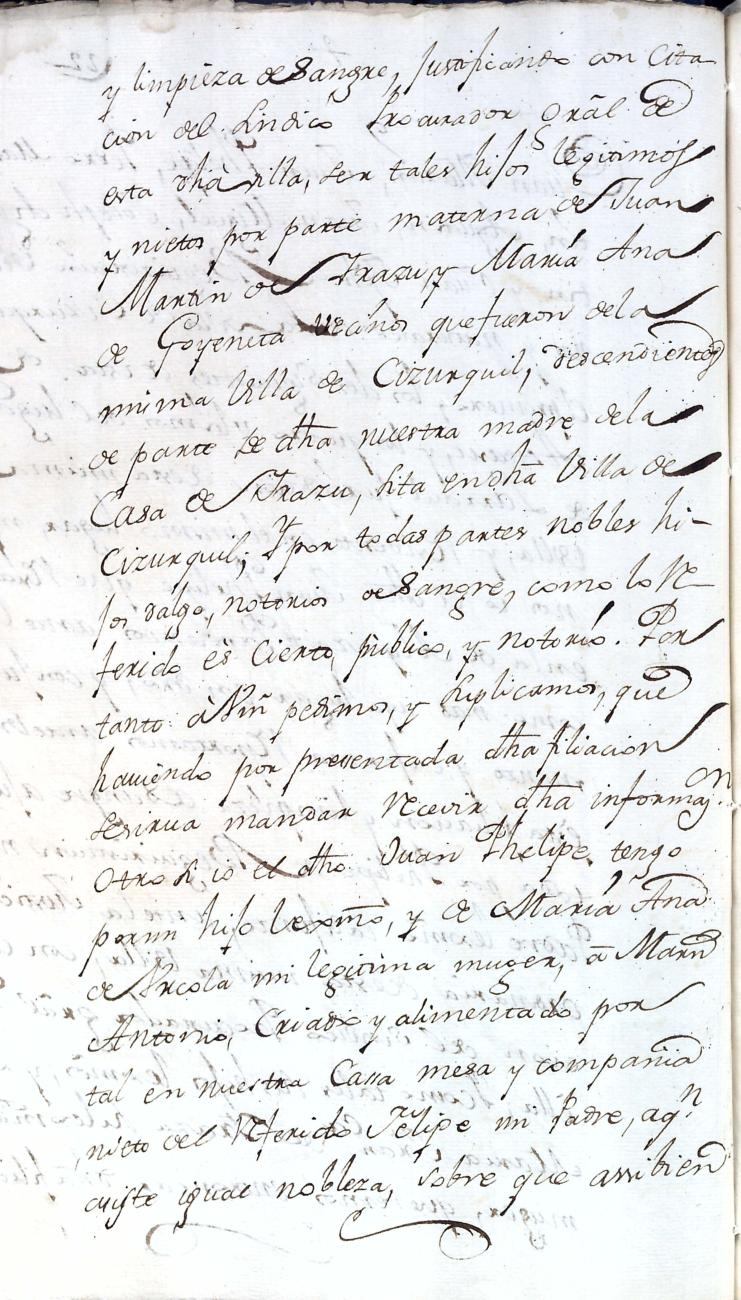 y limpieza de Sangre, Justificando con Cita
ción del Sindicó Procurador Grāl de
esta dhā villa, ser tales hijos legitimos
y nietos por parte materna de Juan
Martin de Yrazu, y María Ana
de Goyeneta vecinos que fueron dela
misma Villa de Cizurquil, descendientes
de parte de dhā nuestra madre dela
Casa de Yrazu, sita en dhā Villa de
Cizurquil; Y por todas partes nobles hi-
jos dalgo, notorios de Sangre, como lo re-
ferido es Cierto, público, y notorio. Por
tanto à Vm̃ pedimos, y suplicamos, que
haviendo por presentada dhā filiacion
sesirva mandar recevir dhā informaz.on
Otro si io el dhō Juan Phelipe tengo
por mi hijo lexmō, y de María Ana
de Urcola mi legitima muger, à Marn
Antonio, Criado y alimentado por
tal en nuestra Casa mesa y compañia
nieto del referido Felipe mi Padre, aqn
asiste igual nobleza, sobre que assibien